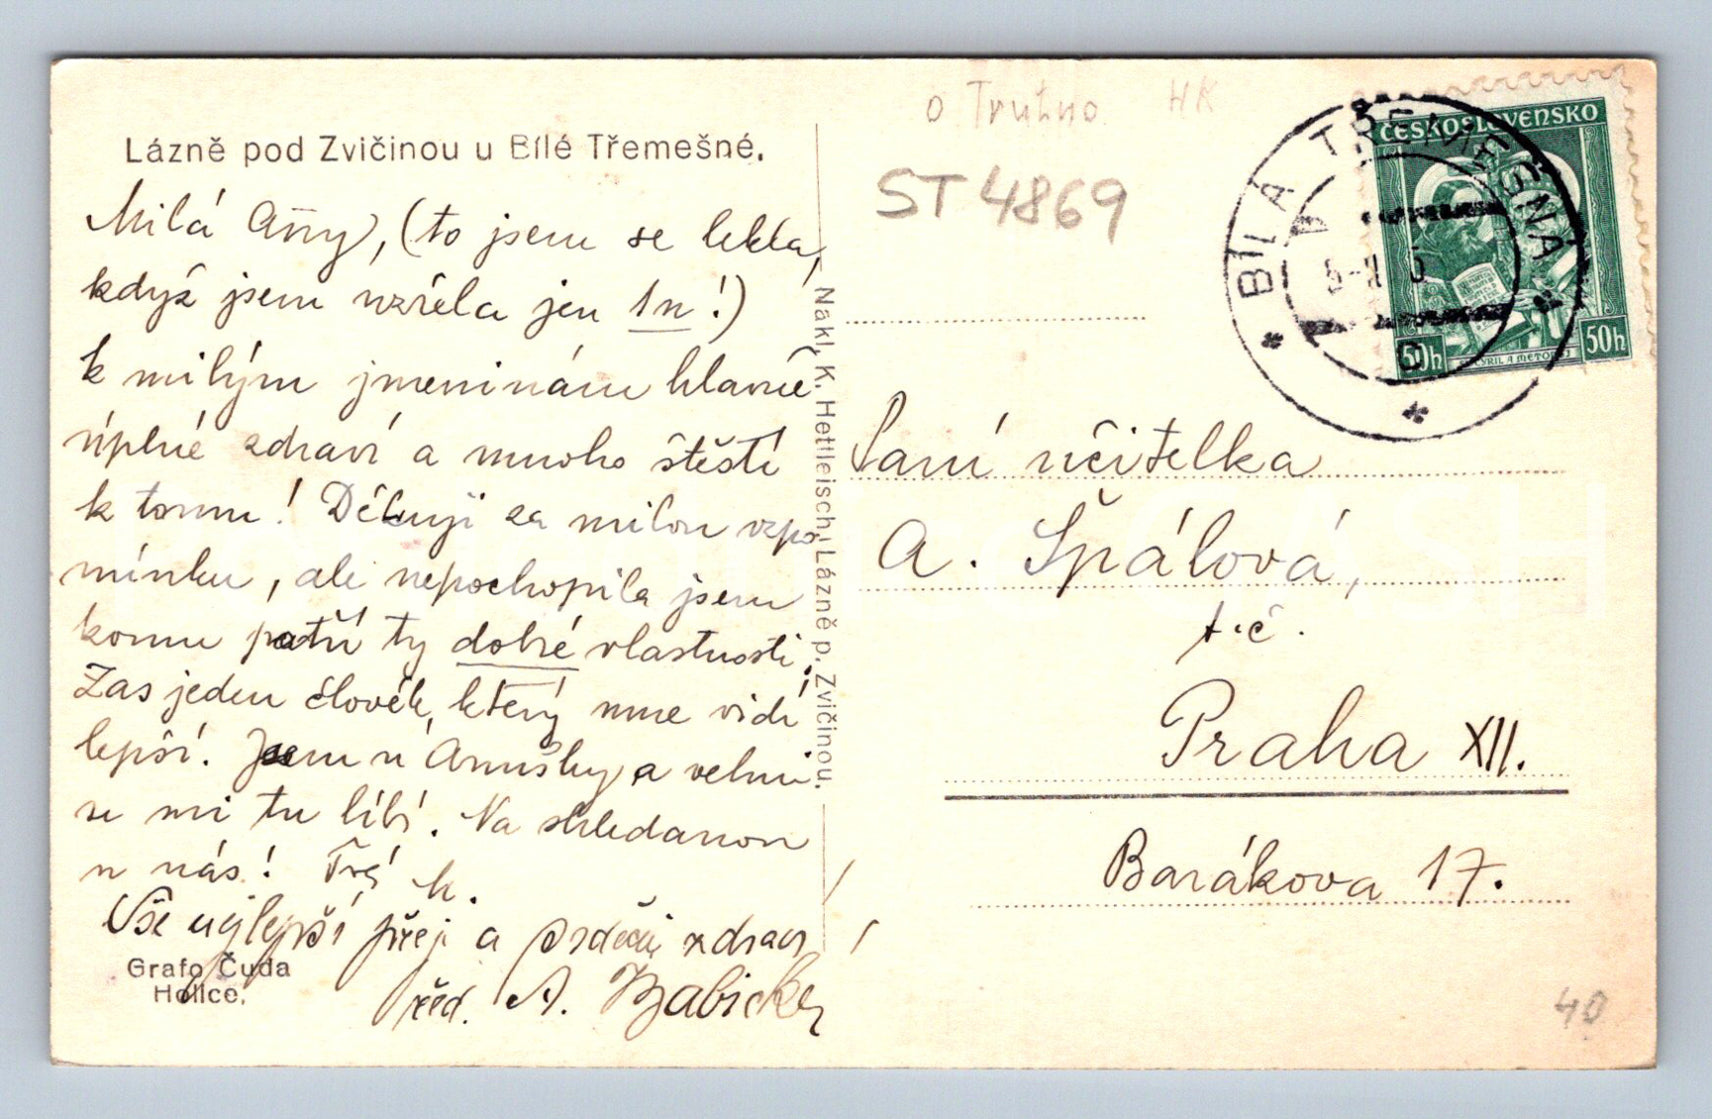 Lázně pod Zvičinou u Bílé Třemešné.
Milá Aňy, (to jsem se lekla,
když jsem uzřela jen 1n!)
k milým jmeninám hlavně
úplné zdraví a mnoho štěstí
k tomu! Děkuji za milou vzpo-
mínku, ale nepochopila jsem
komu patří ty dobré vlastnosti.
Zas jeden člověk, který mne vidí
lepší. Jsem u Anušky a velmi
se mi tu líbí. Na shledanou
u nás! Tvá
Vše nejlepší přeji a srdečně zdraví
řed. A.
Grafo Čuda
Holice.
Nakl. K. Hettfleisch, Lázně p. Zvičinou.
o Trutno HK
ST 4869
ČESKOSLOVENSKO
50h
50h
CYRIL A METODĚJ
BÍLÁ TŘEMEŠNÁ
Paní učitelka
A. Špálová,
t.č.
Praha XII.
Barákova 17.
40